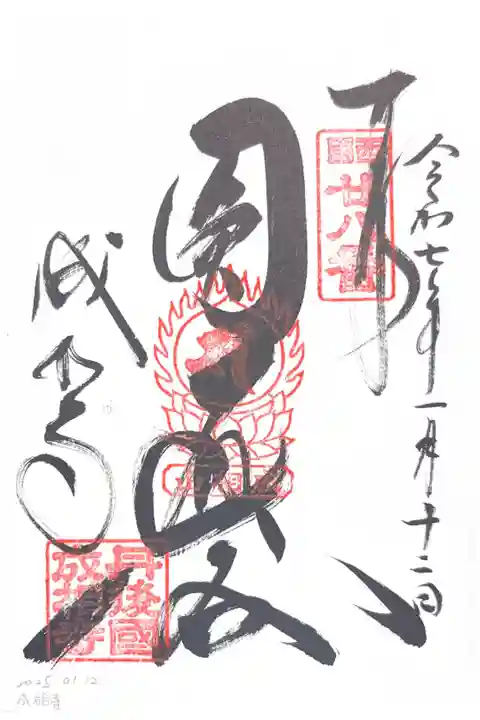 令和七年一月十二日
奉拝
西國
廿八番
圓通殿
丹後國
成相寺
成相寺
2025 01 12
成相寺